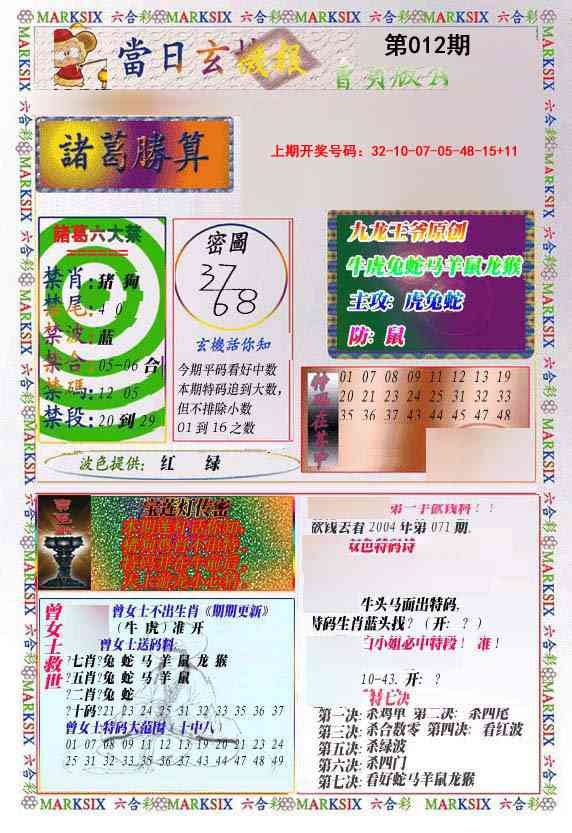 MARKSIX 六合彩 MARKSIX 六合彩 MARKSIX 六合彩 MARKSIX 六合彩
當日玄機報
第012期
諸葛勝算
上期开奖号码：32-10-07-05-48-15+11
諸葛六大禁
禁肖：猪 狗
禁尾：4 0
禁波：蓝
禁合：05-06 合
禁碼：12 05
禁段：20 到 29
密圖
37
68
玄機話你知
今期平码看好中数
本期特码追到大数，
但不排除小数
01 到 16 之数
九龙王爷原创
牛虎兔蛇马羊鼠龙猴
主攻：虎兔蛇
防：鼠
01 07 08 09 11 12 13 19
20 21 23 24 25 31 32 33
35 36 37 43 44 45 47 48
波色提供： 红 绿
宝莲灯传密
曾女士救世
曾女士不出生肖《期期更新》
（牛 虎）准 开
曾女士送码料
?七肖?兔 蛇 马 羊 鼠 龙 猴
?五肖?兔 蛇 马 羊 鼠
?二肖?兔 蛇
?十码?21 23 24 25 31 32 33 35 36 37
曾女士特码大范围（十中八）
01 07 08 09 11 12 13 19 20 21 23 24
25 31 32 33 36 37 43 44 45 47 48 49
欲钱去看 2004 年第 071 期.
双色特码诗
牛头马面出特码，
特码生肖蓝头找？（开：？）
白小姐必中特段！ 准！
10-43. 开：?
特七决
第一决：杀鸡单 第二决：杀四尾
第三决：杀合数零 第四决：看红波
第五决：杀绿波
第六决：杀四门
第七决：看好蛇马羊鼠龙猴
MARKSIX 六合彩 MARKSIX 六合彩 MARKSIX 六合彩 MARKSIX 六合彩